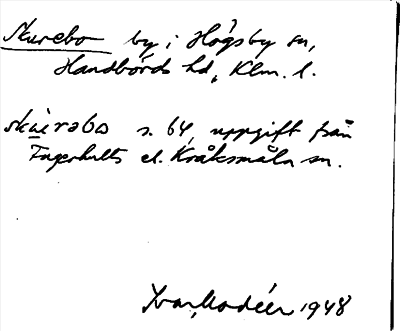 Skurebo by i Högsby sn,
Handbörds hd, Klm. l.
s. 64, uppgift från
Fagerhults el. Kråksmåla sn.
Ivar Modéer 1948